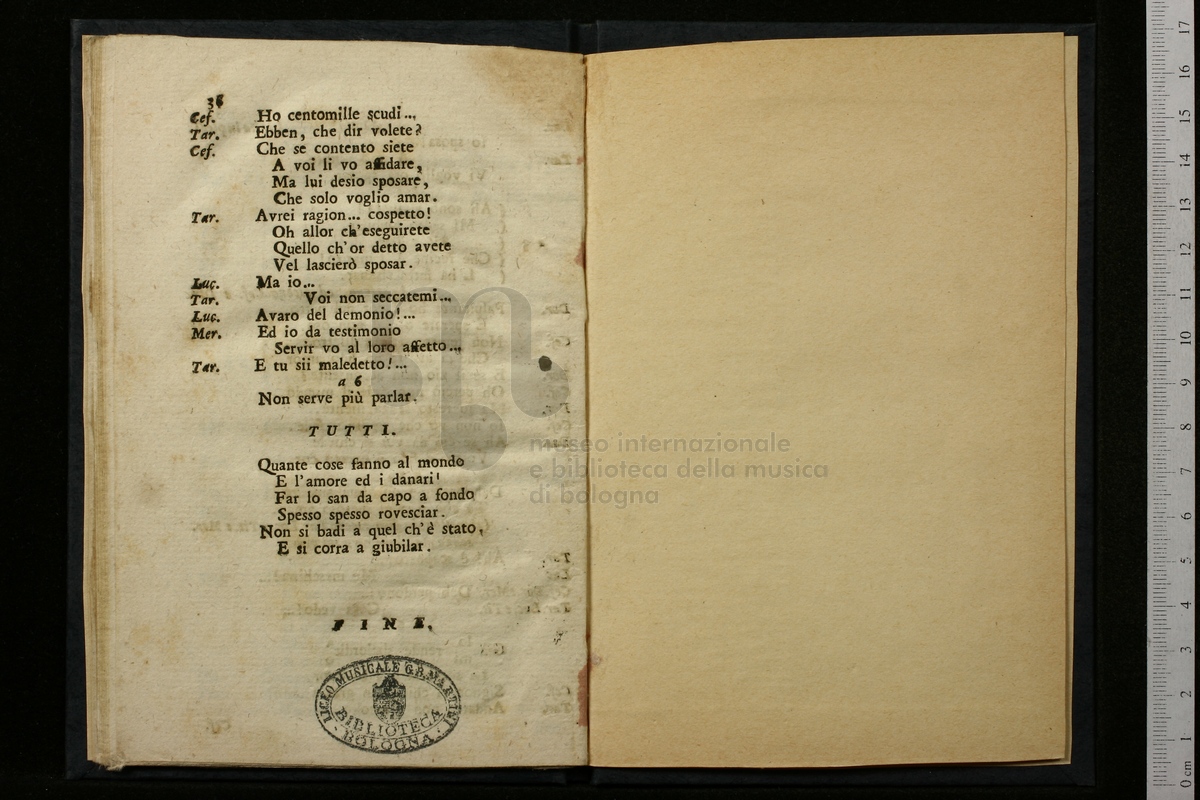 38
Cef. Ho centomille scudi...
Tar. Ebben, che dir volete?
Cef. Che se contento siete
A voi li vo affidare,
Ma lui desio sposare,
Che solo voglio amar.
Tar. Avrei ragion... cospetto!
Oh allor ch'eseguirete
Quello ch'or detto avete
Vel lascierò sposar.
Luc. Ma io...
Tar. Voi non seccatemi...
Luc. Avaro del demonio!...
Mer. Ed io da testimonio
Servir vo al loro affetto...
Tar. E tu sii maledetto!...
a 6
Non serve più parlar.
TUTTI.
Quante cose fanno al mondo
E l'amore ed i danari!
Far lo san da capo a fondo
Spesso spesso rovesciar.
Non si badi a quel ch'è stato,
E si corra a giubilar.
FINE.
LICEO MUSICALE G.B. MARTINI
BIBLIOTECA
BOLOGNA
museo internazionale
e biblioteca della musica
di bologna
0 cm 1 2 3 4 5 6 7 8 9 10 11 12 13 14 15 16 17